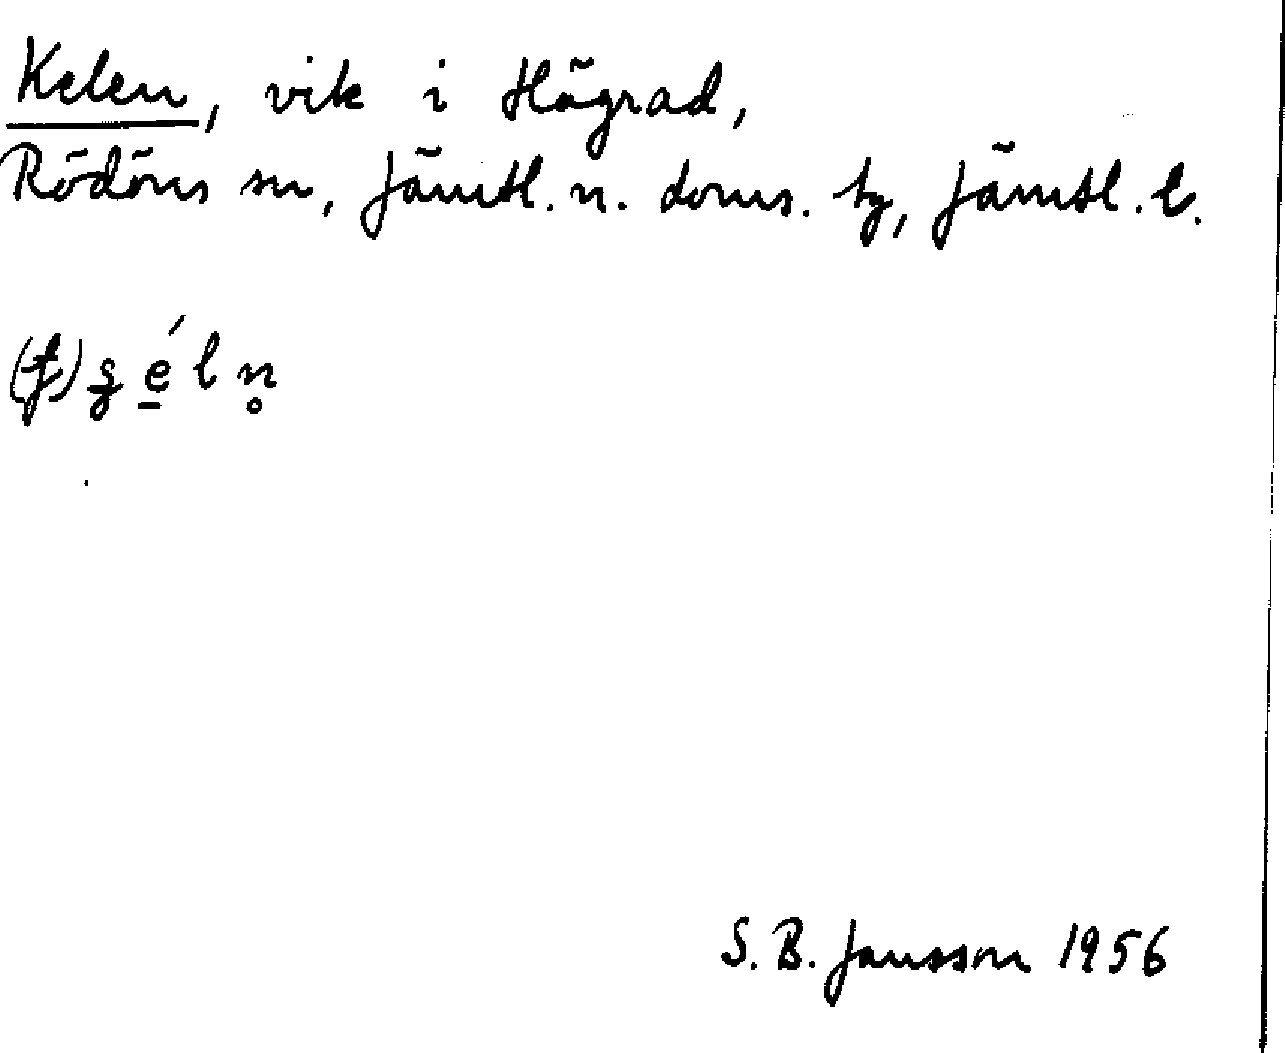 Kelen, vik i Högrad,
Rödöns sn, Jämtl. n. doms. tg, Jämtl. l.
S. B. Jansson 1956